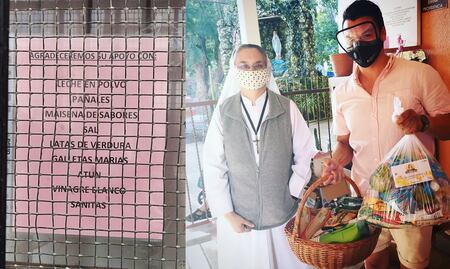 AGRADECEREMOS SU APOYO CON:
LECHE EN POLVO
PAÑALES
MAISENA DE SABORES
SAL
LATAS DE VERDURA
GALLETAS MARIAS
ATUN
VINAGRE BLANCO
SANITAS
PROVIDENCIA